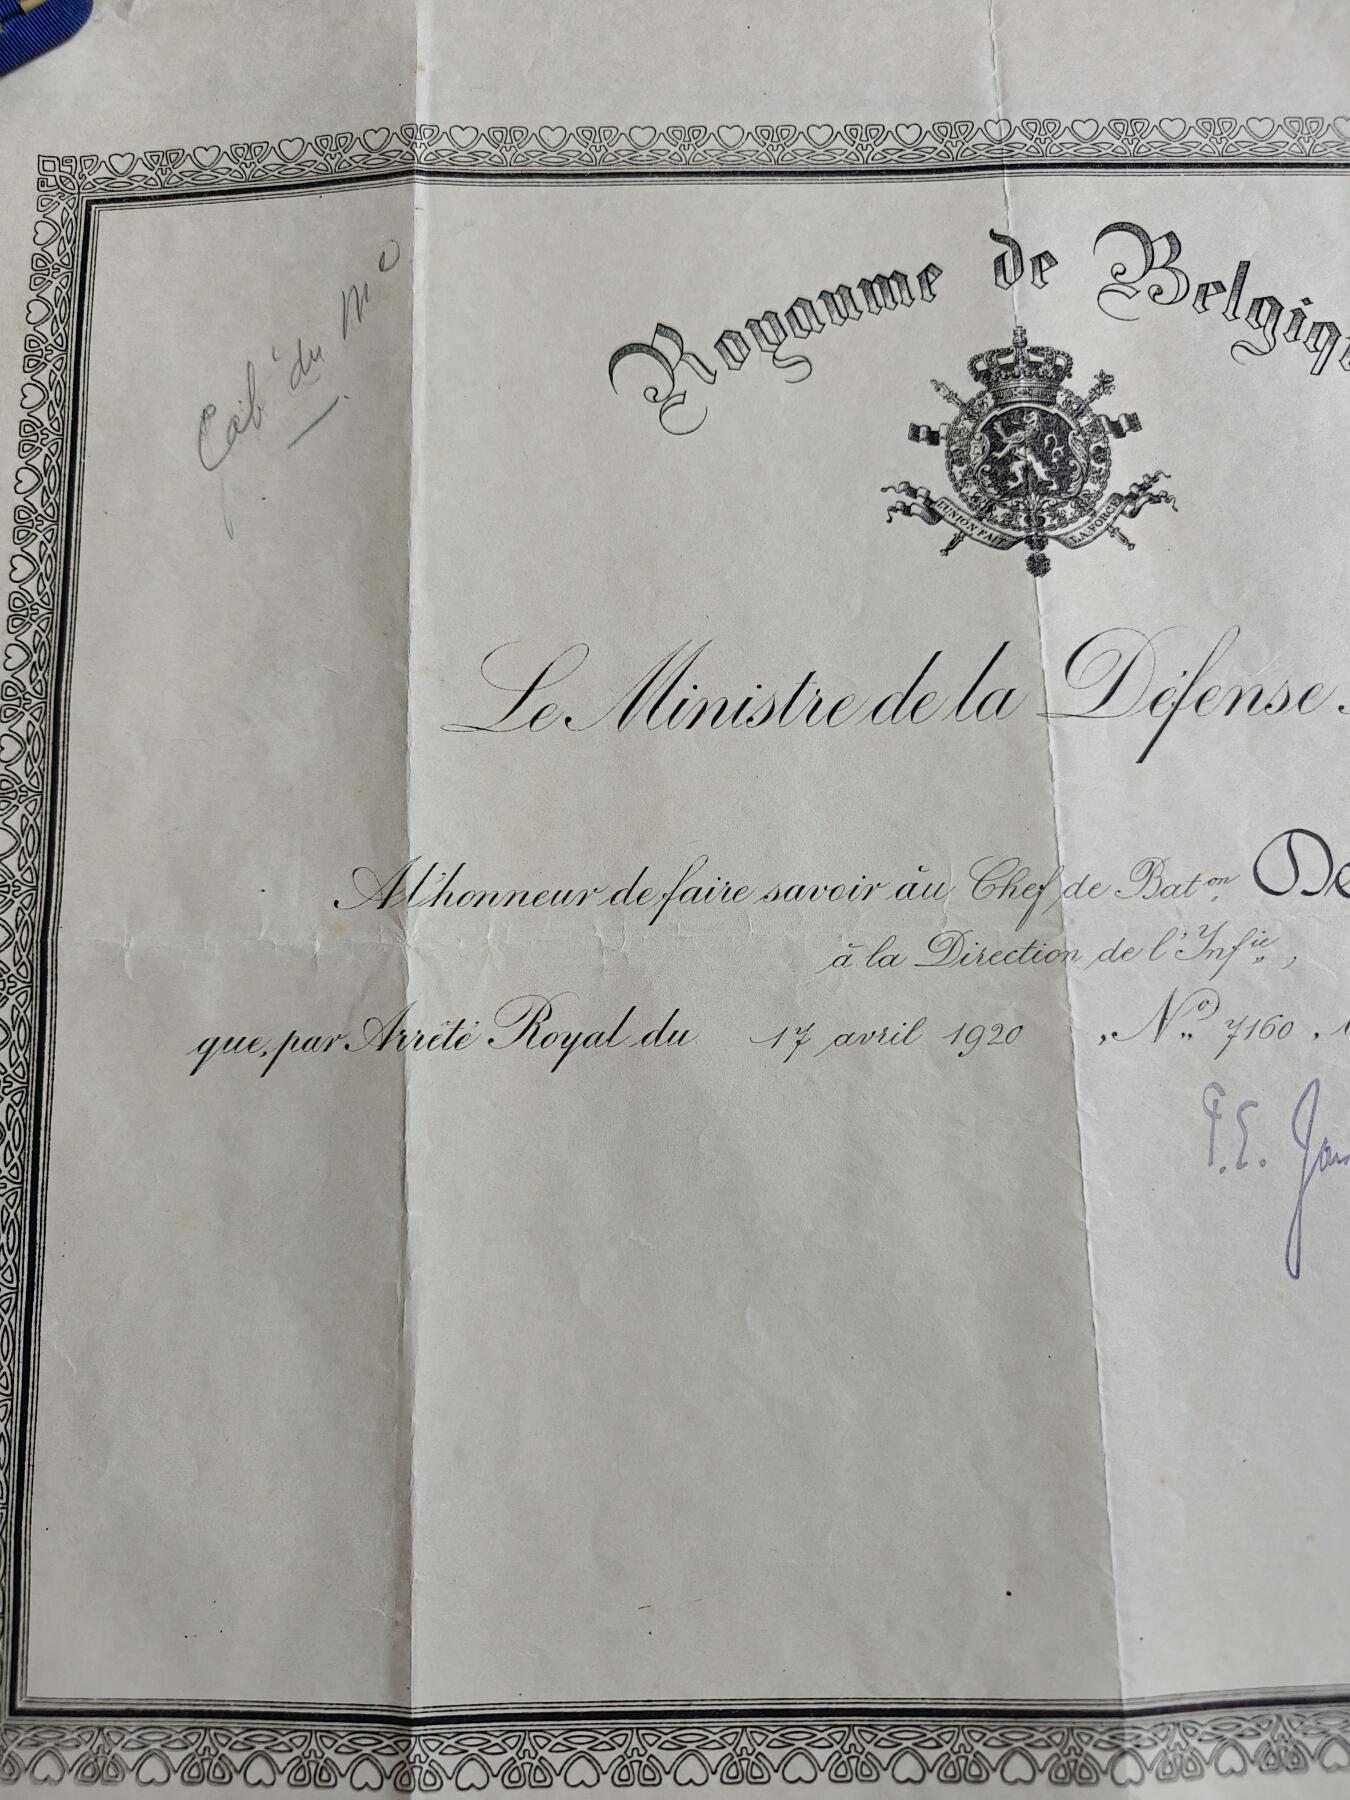 Cab. du Mre
Royaume de Belgiqu
L'UNION FAIT LA FORCE
Le Ministre de la Défense
A l'honneur de faire savoir au Chef de Baton. De
à la Direction de l'Infie,
que, par Arrêté Royal du 17 avril 1920, No 7160,
P.E. Jan